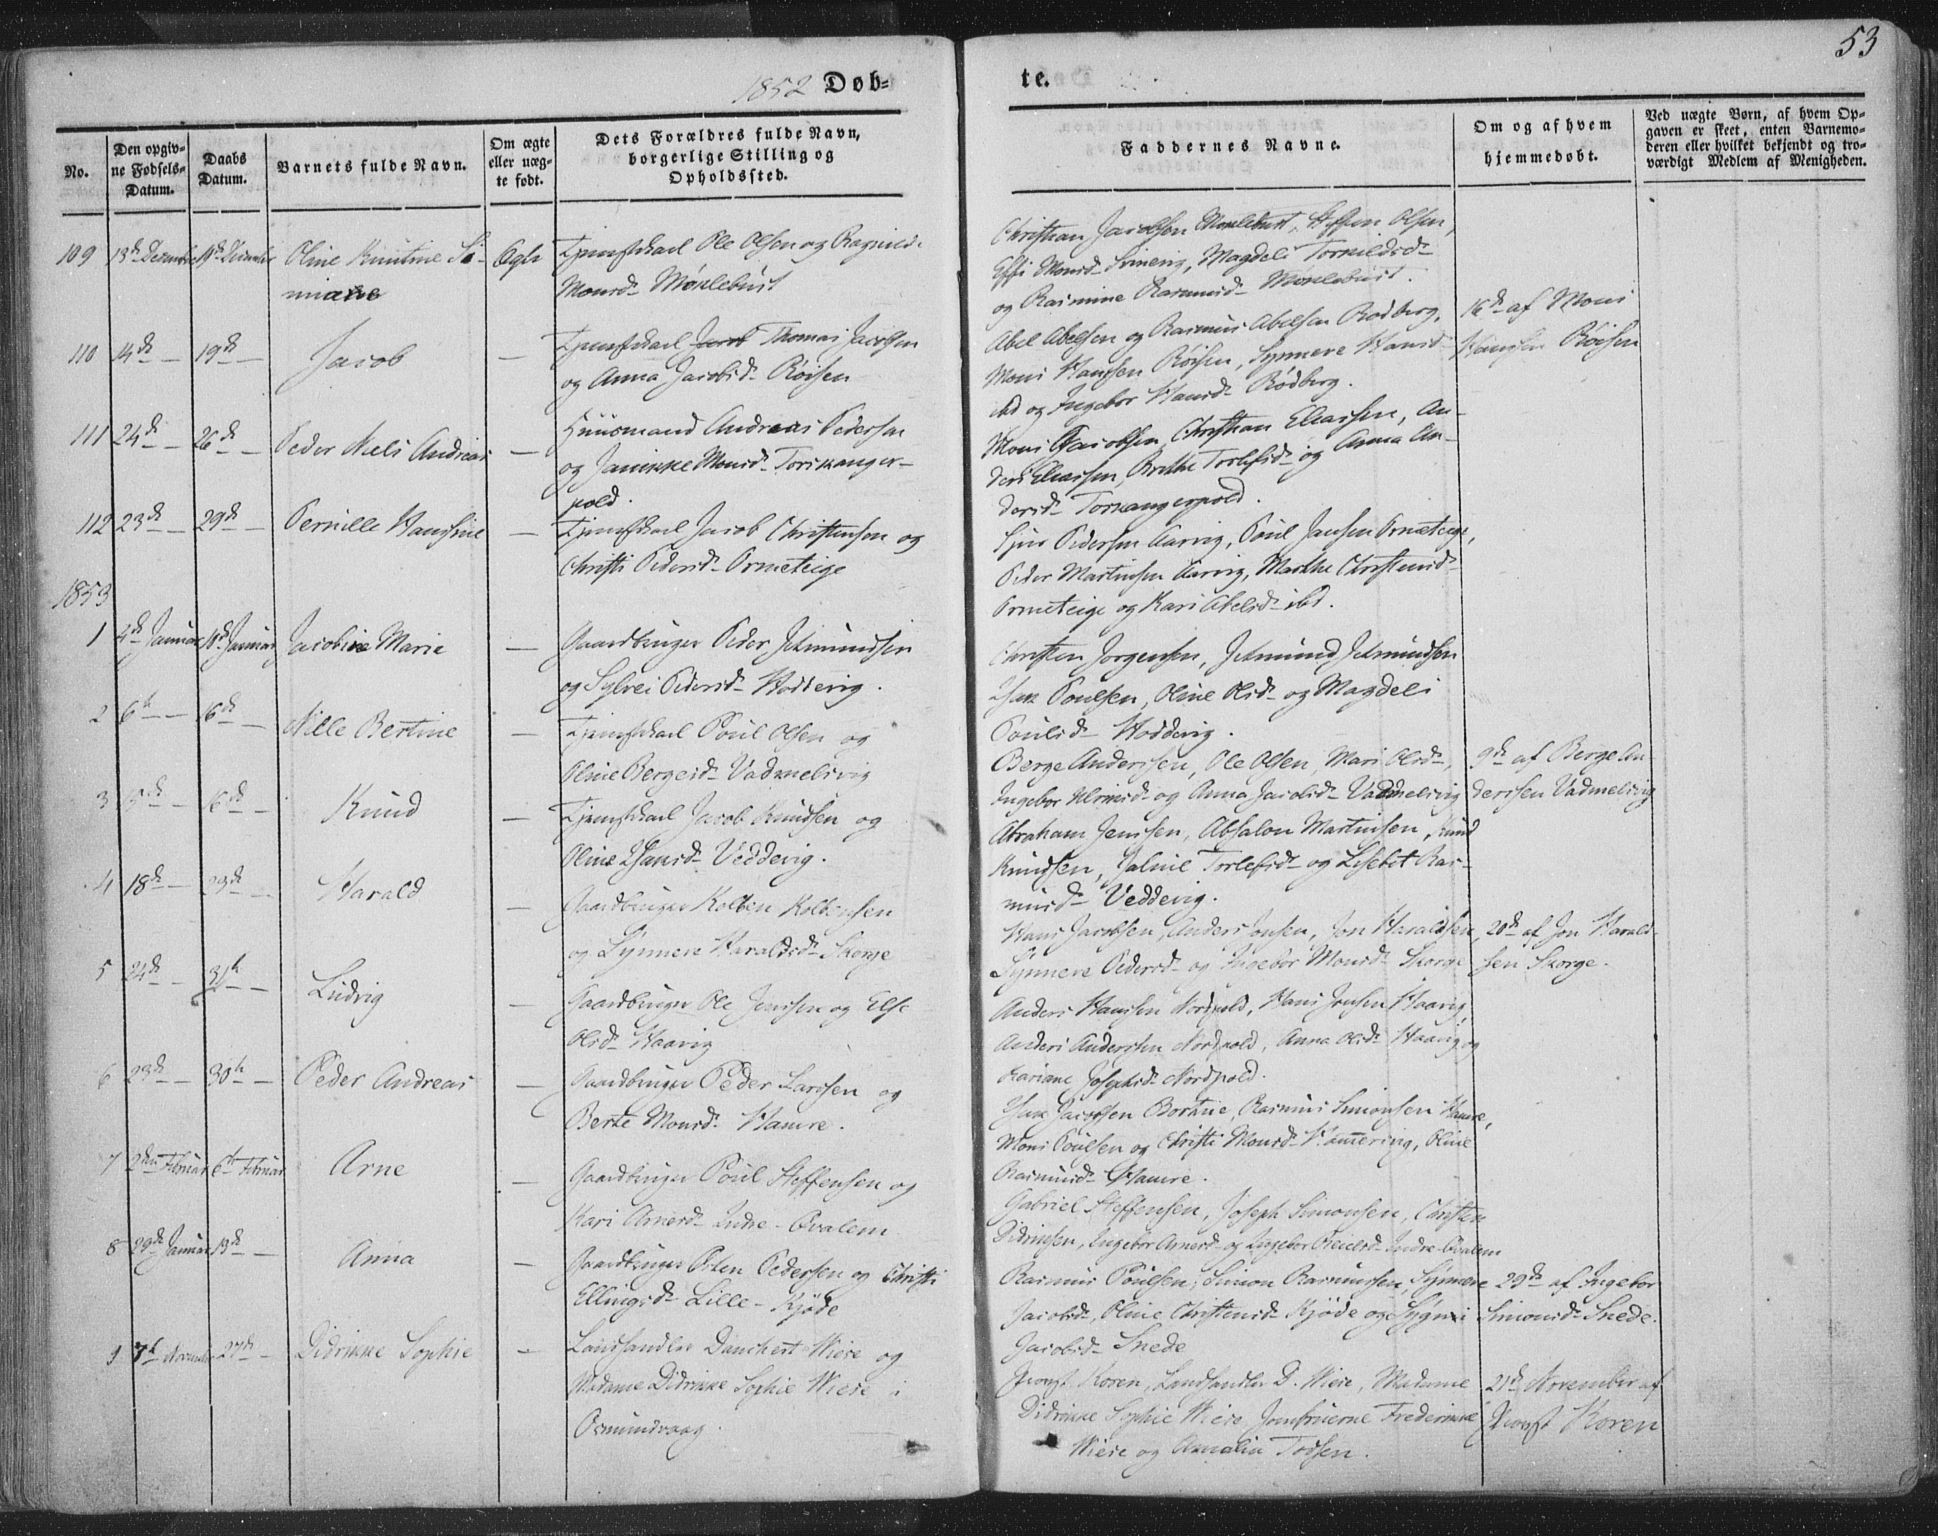 1852 Døb=
te.
53
No.
Den opgiv-
ne Fødsels-
Datum.
Daabs
Datum.
Barnets fulde Navn.
Om ægte
eller uæg-
te født.
Dets Forældres fulde Navn,
borgerlige Stilling og
Opholdssted.
Faddernes Navne.
Om og af hvem
hjemmedøbt.
Ved uægte Børn, af hvem Op-
gaven er skeet, enten Barnemo-
deren eller hvilket bekjendt og tro-
værdigt Medlem af Menigheden.
109 13de December 19de December Oline Ægte Tjenestkarl Ole Olsen og Ragnild
Monsd. Mønlebust
Christian Jacobsen Mønlebust, Steffen Olsen,
Monsd. Magdeli
og Rasmine Rasmusd. Mønlebust.
110 14de — 19de — Jacob — Tjenestkarl Thomas Jacobsen
og Anna Jacobsd. Röisen
Abel Abelsen og Rasmus Abelsen Rødberg,
Mons Hansen Röisen, Synneve Hansd.
ibd og Ingebor Hansd. Rødberg.
16de af Mons
Hansen Röisen
111 24de — 26de — Peder Niels Andreas — Huusmand Andreas Pedersen
og Janikke Monsd. Torskanger-
pold.
Mons Jacobsen, Christian Eliassen, An-
ders Eliassen, Brithe Torlefsd. og Anna An-
dersd. Torskangerpold.
112 23de — 29de — Pernille Hansine — Tjenestkarl Jacob Christensen og
Christi Pedersd. Ormeteige
Sjur Pedersen Aarvig, Poul Jansen Ormeteige,
Peder Martinsen Aarvig, Marthe Christensd.
Ormeteige og Kari Abelsd. ibd.
1853
1 4de Januar Januar Jacobine Marie — Gaardbruger Peder Jetmundsen
og Sylvei Pedersd. Hoddevig.
Christen Jørgensen, Jetmund Jetmundsen
Isak Poulsen, Oline Olsd. og Magdeli
Poulsd. Hoddevig.
2 6te — 16de — Nille Bertine — Tjenestkarl Poul Olsen og
Oline Bergesd. Vadmelsvig
Berge Anderssen, Ole Olsen, Mari Olsd.,
Ingebor og Anna Jacobsd. Vadmelsvig
9de af Berge An-
derssen Vadmelsvig
3 — 16de — Knud — Tjenestkarl Jacob Knudsen og
Oline Isaksd. Veddevig.
Abraham Jenssen, Absalon Martinsen, Knud
Knudsen, Torlefsd. og Lisebet Ras-
musd. Veddevig.
4 18de — 23de — Harald — Gaardbruger Kolben Kolbensen
og Synneve Haraldsd. Skorge
Hans Jacobsen, Anders Jonsen, Jon Haraldsen,
Synneve Pedersd. og Ingebor Monsd. Skorge
20de af Jon Harald-
sen Skorge.
5 24de — — Ludvig — Gaardbruger Ole Jenssen og Else
Olsd. Haavig
Anders Hanssen Nordpold, Hans Jonsen Haavig,
Anders Anderssen Nordpold, Anna Olsd. Haavig og
Kariane Josephsd. Nordpold.
6 23de — 30te — Peder Andreas — Gaardbruger Peder Larssen og
Berte Monsd. Hamre.
Isak Jacobsen Bortne, Rasmus Simonsen Hamre,
Mons Poulsen og Christi Monsd. Oline
Rasmusd. Hamre.
7 2den Februar 6te Februar Arne — Gaardbruger Poul Steffensen og
Kari Arnesd. Indre-Qvalem
Gabriel Steffensen, Joseph Simonsen, Christen
Didriksen, Ingebor Arnesd. og Ingebor Indre-Qvalem
8 29de Januar 13de — Anna — Gaardbruger Peder Pedersen og Christi
Ellingsd. Lille-Kjøde
Rasmus Poulsen, Simon Rasmussen, Synneve
Jacobsd., Oline Christensd. Kjøde og
Jacobsd. Snede
29de af Ingebor
Simonsd. Snede.
9 7de November 27de — Didrikke Sophie — Landhandler Danchert Wiese og
Madame Didrikke Sophie Wiese i
Osmundvaag.
Provst Koren, Landhandler D. Wiese, Madame
Didrikke Sophie Wiese, Jomfruerne Frederikke
Wiese og Amalia
21de November af
Provst Koren